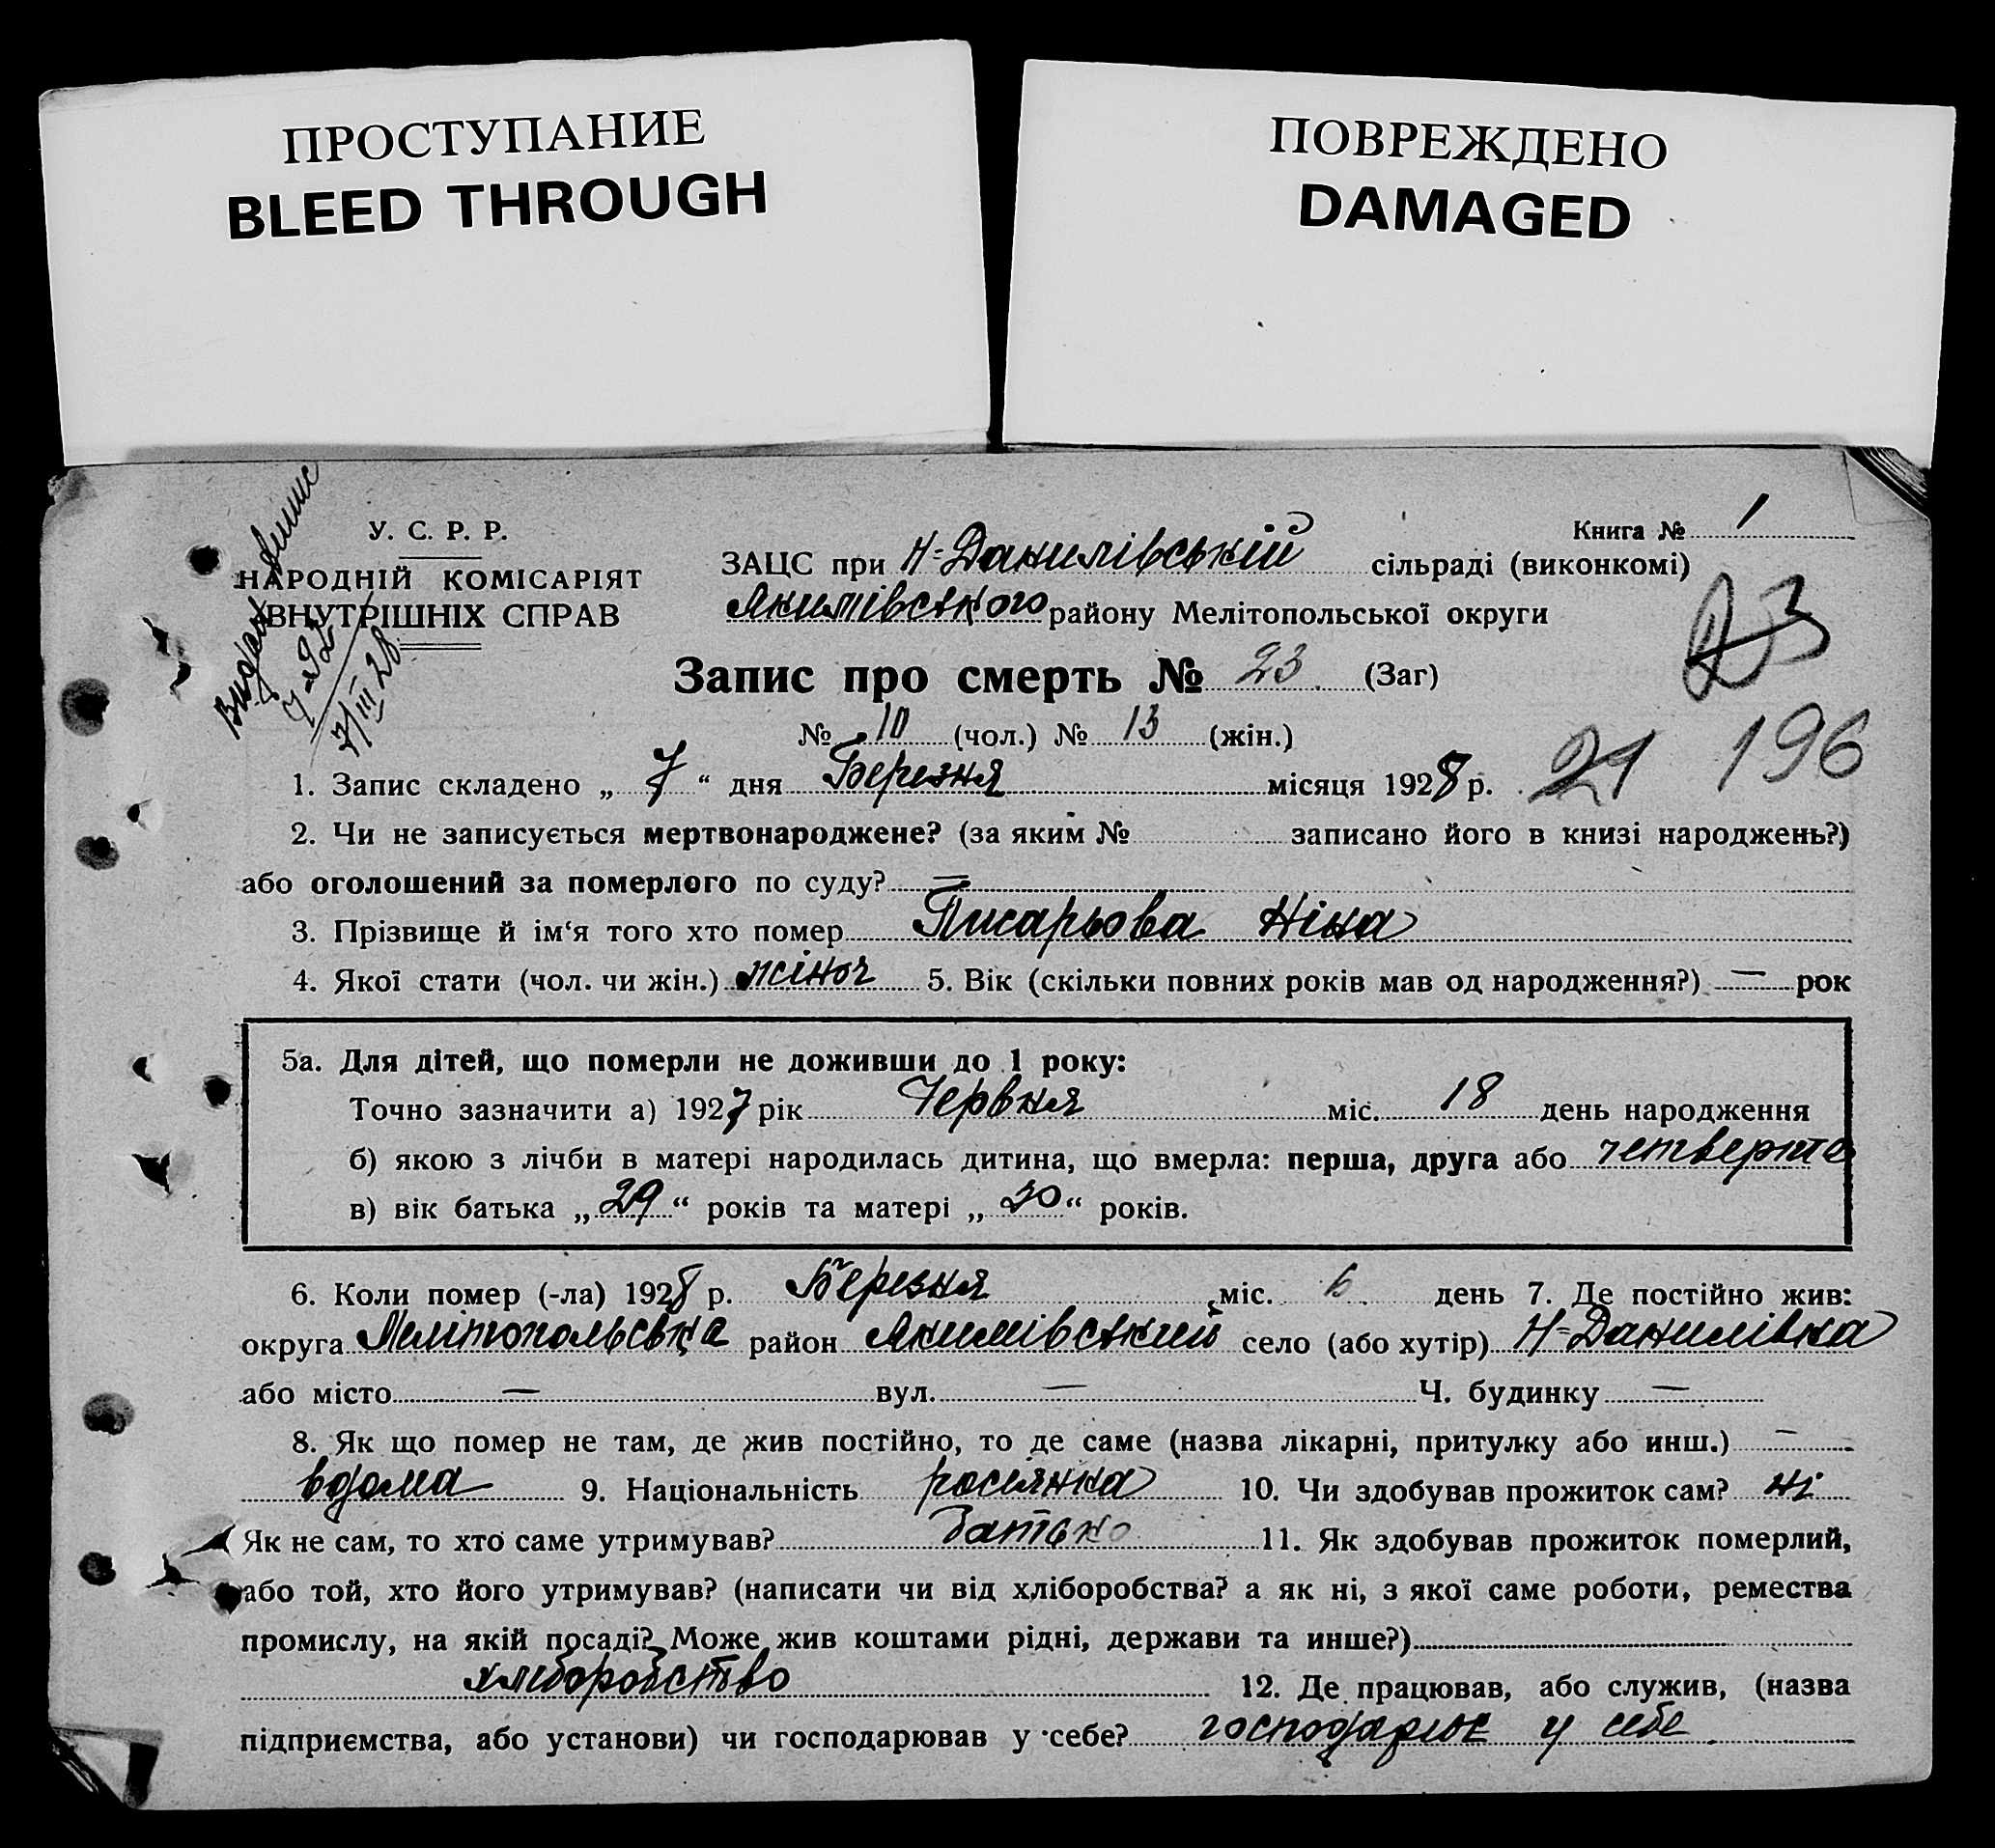 ПРОСТУПАНИЕ
BLEED THROUGH
ПОВРЕЖДЕНО
DAMAGED
У. С. Р. Р.
НАРОДНІЙ КОМІСАРІЯТ
ВНУТРІШНІХ СПРАВ
7/III 28
Книга № 1
ЗАЦС при Н-Данилівській сільраді (виконкомі)
Якимівського району Мелітопольської округи
23
Запис про смерть № 23. (Заг)
№ 10 (чол.) № 13 (жін.)
21 196
1. Запис складено „ 7 “ дня Березня місяця 1928 р.
2. Чи не записується мертвонароджене? (за яким № записано його в книзі народжень?)
або оголошений за померлого по суду? —
3. Прізвище й ім‘я того хто помер Писарьова Ніна
4. Якої стати (чол. чи жін.) жіноч 5. Вік (скільки повних років мав од народження?) — рок
5а. Для дітей, що померли не доживши до 1 року:
Точно зазначити а) 1927 рік Червня міс. 18 день народження
б) якою з лічби в матері народилась дитина, що вмерла: перша, друга або четверта
в) вік батька „ 29 “ років та матері „ 30 “ років.
6. Коли помер (-ла) 1928 р. Березня міс. 6 день 7. Де постійно жив:
округа Мелітопольська район Якимівський село (або хутір) Н-Данилівка
або місто — вул. — Ч. будинку —
8. Як що помер не там, де жив постійно, то де саме (назва лікарні, притулку або инш.) —
вдома 9. Національність росіянка 10. Чи здобував прожиток сам? ні
Як не сам, то хто саме утримував? Батько 11. Як здобував прожиток померлий,
або той, хто його утримував? (написати чи від хліборобства? а як ні, з якої саме роботи, ремества
промислу, на якій посаді? Може жив коштами рідні, держави та инше?)
хліборобство 12. Де працював, або служив, (назва
підприємства, або установи) чи господарював у себе? господарює у себе